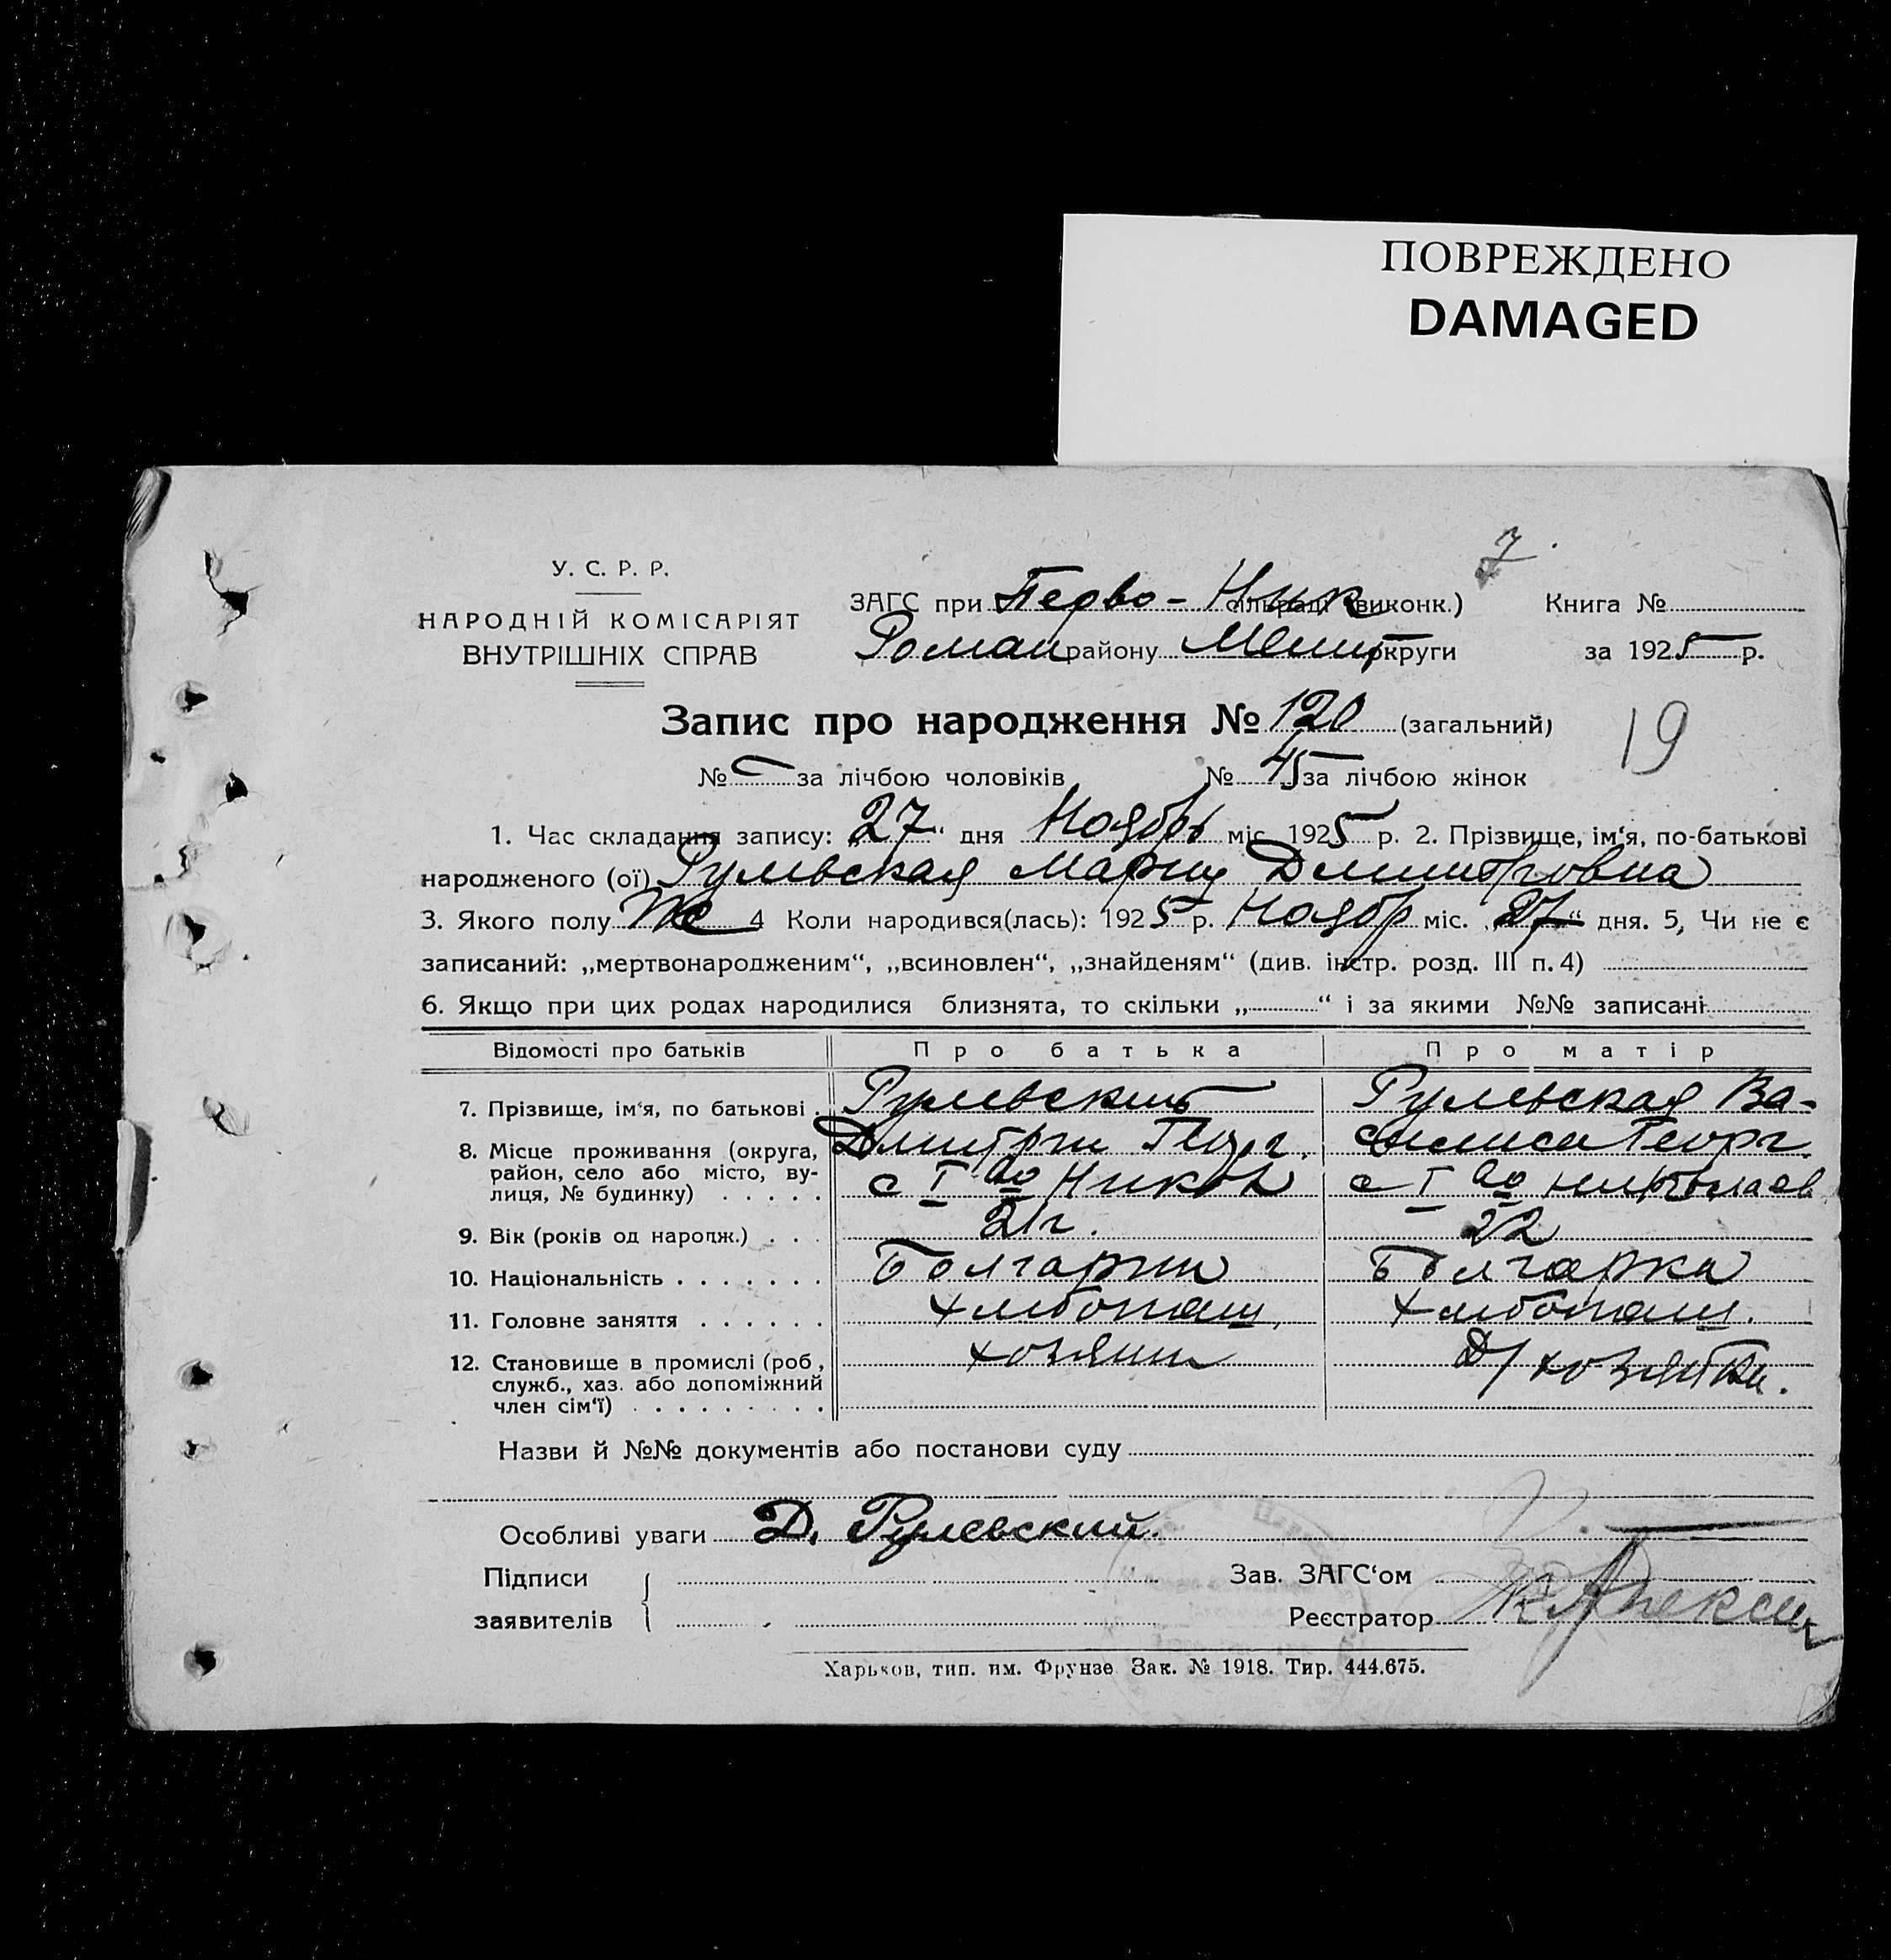 ПОВРЕЖДЕНО
DAMAGED
7
У. С. Р. Р.
НАРОДНІЙ КОМІСАРІЯТ
ВНУТРІШНІХ СПРАВ
ЗАГС при Перво-Ник сільраді (виконк.) Книга №
Роман району Мелит округи за 1925 р.
Запис про народження № 120 (загальний)
19
№ — за лічбою чоловіків № 45 за лічбою жінок
1. Час складання запису: 27“ дня Ноябрь міс. 1925 р. 2. Прізвище, ім‘я, по-батькові
народженого (ої) Рулевская Мария Дмитровна
3. Якого полу Же 4 Коли народився(лась): 1925 р. Ноябр міс. „27“ дня. 5, Чи не є
записаний: „мертвонародженим“, „всиновлен“, „знайденям“ (див. інстр. розд. III п. 4)
6. Якщо при цих родах народилися близнята, то скільки „ “ і за якими №№ записані
Відомості про батьків Про батька Про матір
7. Прізвище, ім‘я, по батькові . Рулевский Рулевская Ва-
Дмитрий Георг. силиса Георг.
8. Місце проживання (округа, район, село або місто, вулиця, № будинку) . . . . . с I во Никол с I во Николаев
9. Вік (років од народж.) . . . 21 г. 22
10. Національність . . . . . . . Болгарин Болгарка
11. Головне заняття . . . . . . Хлебопаш. Хлебопаш.
12. Становище в промислі (роб., служб., хаз. або допоміжний член сім‘ї) . . . . . . . . . хозяин Д/хозяйки.
Назви й №№ документів або постанови суду
Особливі уваги Д. Рулевский.
Підписи
заявителів
Зав. ЗАГС‘ом
Реєстратор
Харьков, тип. им. Фрунзе Зак. № 1918. Тир. 444.675.